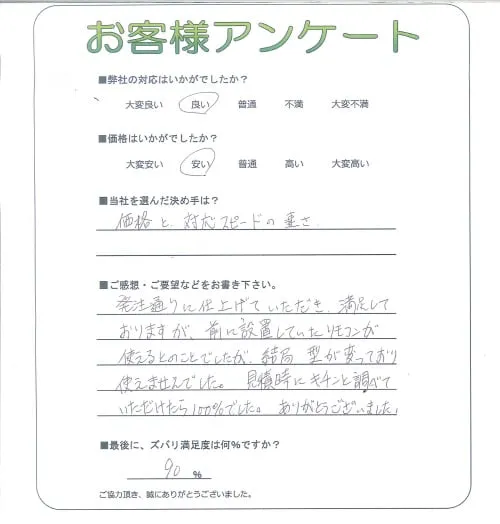 お客様アンケート
■弊社の対応はいかがでしたか?
大変良い 良い 普通 不満 大変不満
■価格はいかがでしたか?
大変安い 安い 普通 高い 大変高い
■当社を選んだ決め手は?
価格と、対応スピードの重さ.
■ご感想・ご要望などをお書き下さい。
発注通りに仕上げていただき、満足して
おりますが、前に設置していたリモコンが
使えるとのことでしたが、結局 型が変っており
使えませんでした。 見積時にキチンと調べて
いただけたら100%でした。 ありがとうございました
■最後に、ズバリ満足度は何%ですか?
90 %
ご協力頂き、誠にありがとうございました。